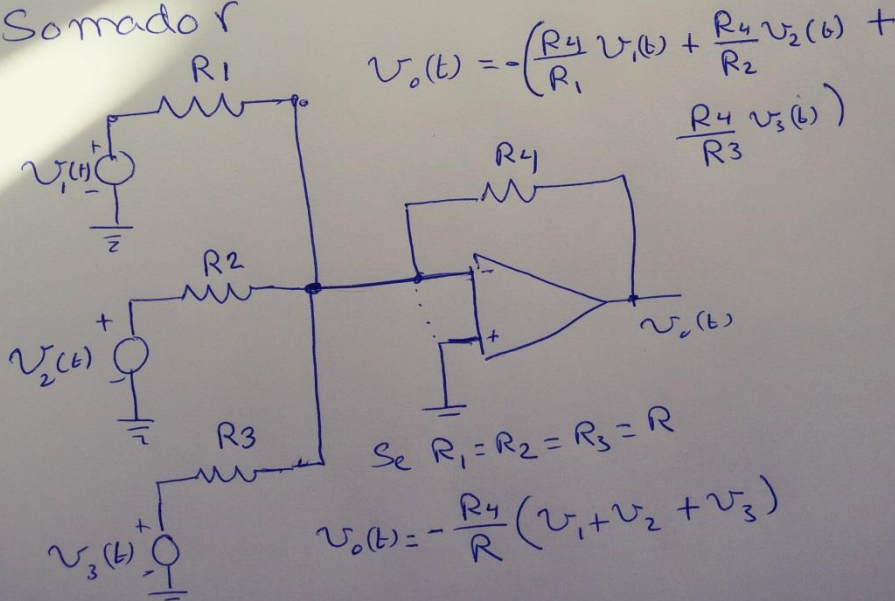 Somador
R1
v₀(t) = -(R4/R1 v₁(t) + R4/R2 v₂(t) +
R4/R3 v₃(t))
R4
+
v₁(t)
-
R2
+
v₂(t)
-
-
+
v₀(t)
R3
Se R₁ = R₂ = R₃ = R
+
v₃(t)
-
v₀(t) = - R4/R (v₁ + v₂ + v₃)